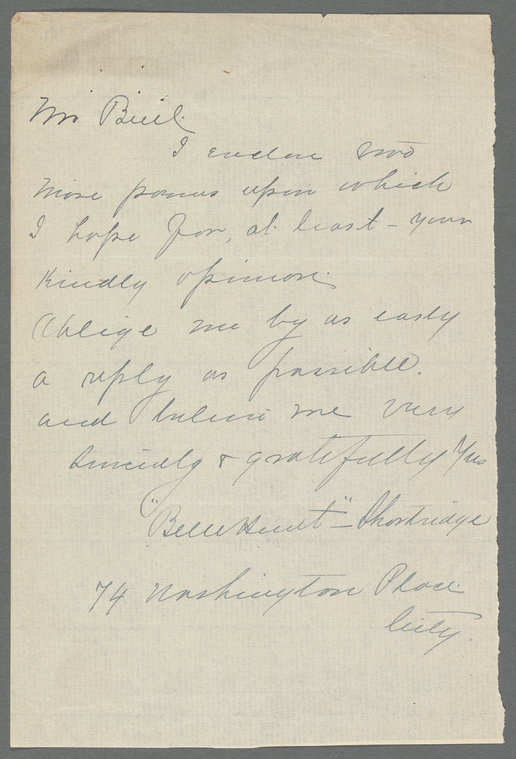 Mr Buel.
I enclose two
more poems upon which
I hope for, at least – your
kindly opinion.
Oblige me by as early
a reply as possible.
and believe me very
sincerely & gratefully Yrs
"Belle Hunt" – Shortridge
74 Washington Place
City.